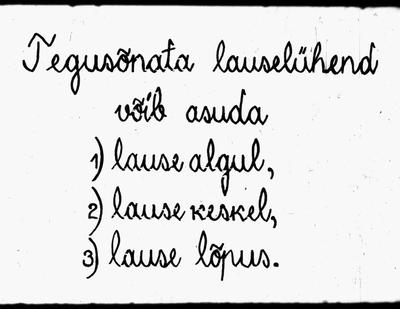 Tegusõnata lauselühend
võib asuda
1) lause algul,
2) lause keskel,
3) lause lõpus.